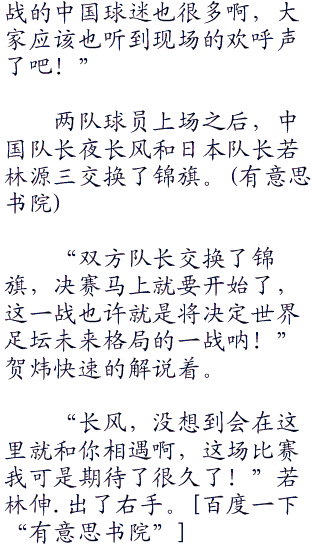 战的中国球迷也很多啊，大
家应该也听到现场的欢呼声
了吧！”
两队球员上场之后，中
国队长夜长风和日本队长若
林源三交换了锦旗。(有意思
书院)
“双方队长交换了锦
旗，决赛马上就要开始了，
这一战也许就是将决定世界
足坛未来格局的一战呐！”
贺炜快速的解说着。
“长风，没想到会在这
里就和你相遇啊，这场比赛
我可是期待了很久了！”若
林伸.出了右手。[百度一下
“有意思书院”]